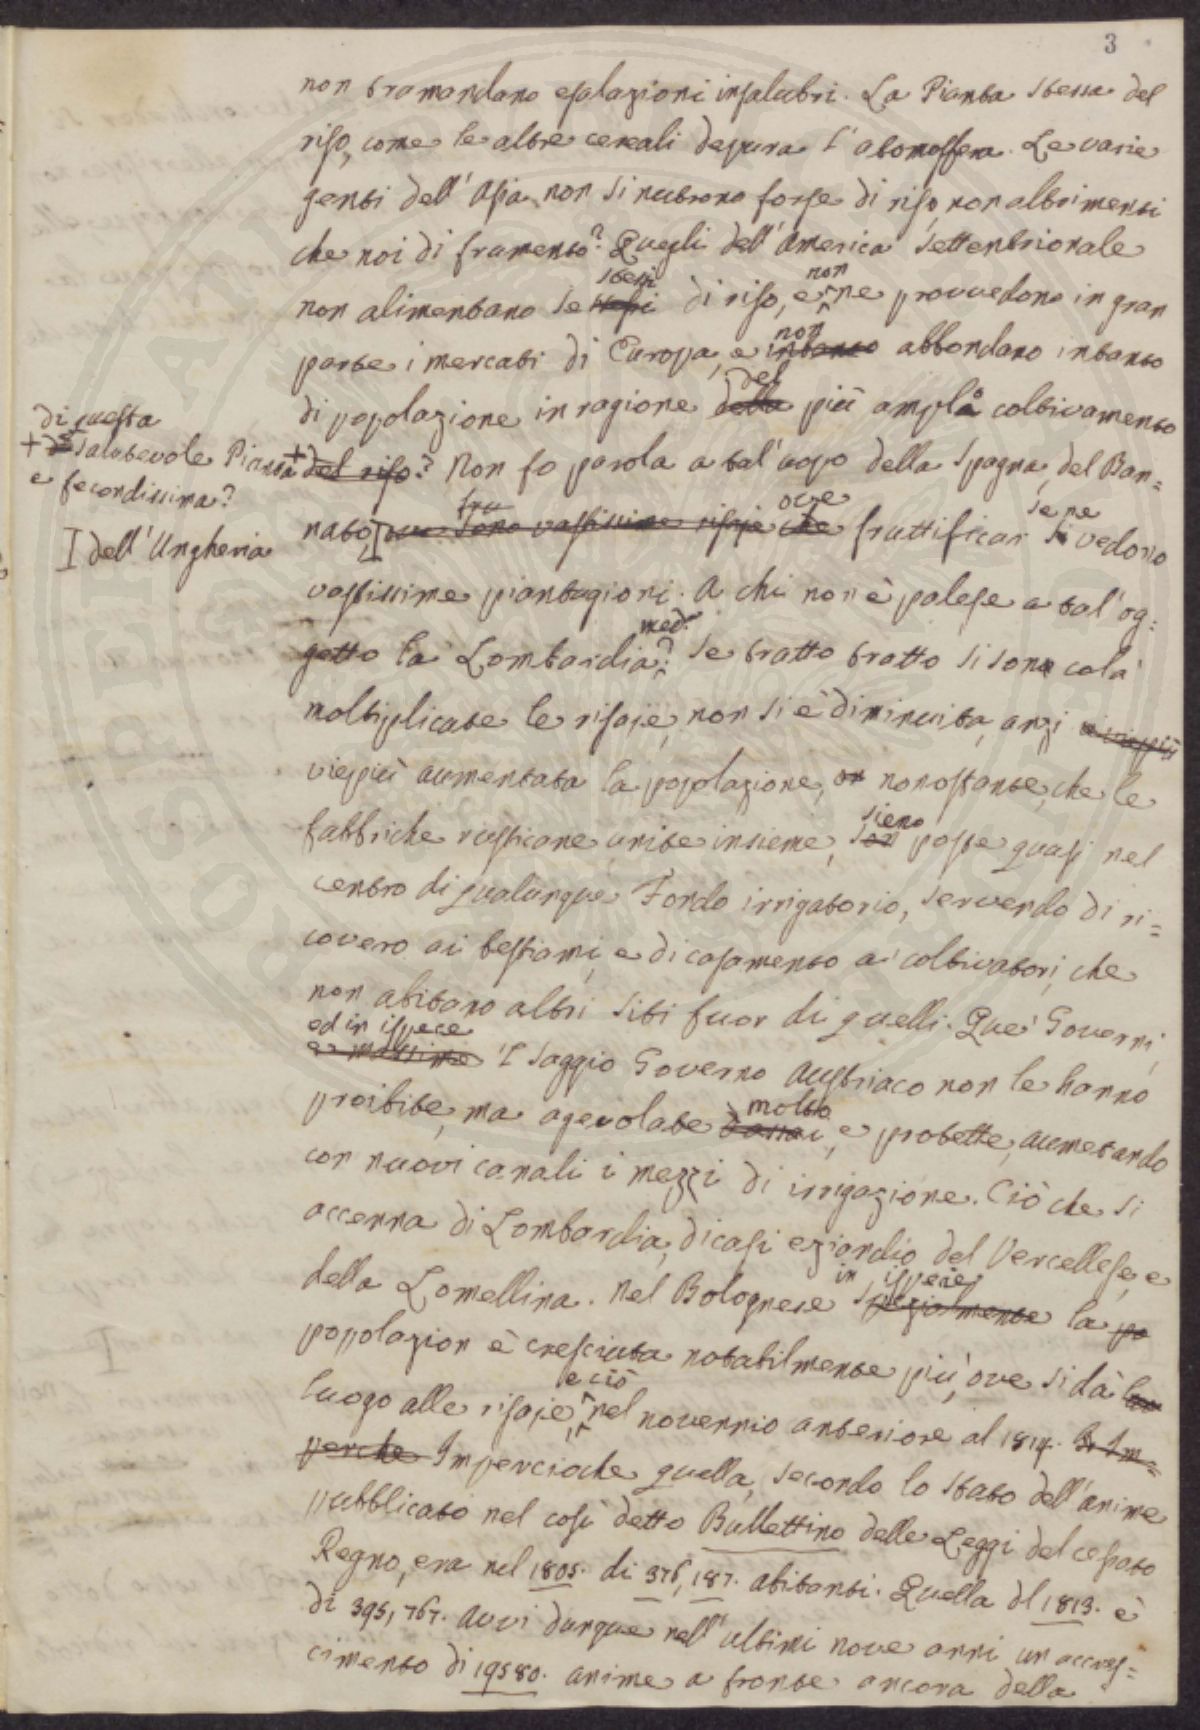 3
non tramandano esalazioni insalubri. La Pianta stessa del
riso, come le altre cereali depura l'atomosfera. Le varie
genti dell'Asia non si nutrono forse di riso, non altrimenti
che noi di framento? Quegli dell'America Settentrionale
stessi non
non alimentano se stessi di riso, e ne provvedono in gran
non
parte i mercati di Europa, e intanto abbondano intanto
del
di popolazione in ragione della più ampla coltivamento
di questa
+ salutevole Pianta + del riso? Non fo parola a tal'uopo della Spagna, del Ban=
e fecondissima?
fru ove se ne
nato, I ove sono vastissime risaje che fruttificar si vedono
I dell'Ungheria
vastissime piantagioni. A chi non è palese a tal'og=
med.
getto la Lombardia? Se tratto tratto si sono colà
moltiplicate le risaje, non si è diminuita, anzi viepiù
viepiù aumentata la popolazione, nonostante, che le
sieno
fabbriche rusticane unite insieme, son poste quasi nel
centro di qualunque Fondo irrigatorio, servendo di ri=
covero ai bestiami, e di casamento a' coltivatori, che
non abitano altri siti fuor di quelli. Que' Governi,
ed in ispece
e massime 'l saggio Governo Austriaco non le hanno
molto
proibite, ma agevolate assai, e protette, aumetando
con nuovi canali i mezzi di irrigazione. Ciò che si
accenna di Lombardia, dicasi eziandio del Vercellese, e
in ispecie
della Lomellina. Nel Bolognese spezialmente la po
popolazion è cresciuta notabilmente più, ove si dà luo
e ciò
luogo alle risaje, nel novennio anteriore al 1814. Im=
perche Impercioche quella, secondo lo stato dell'anime
pubblicato nel così detto Bullettino delle Leggi del cessato
Regno, era nel 1805. di 376,187. abitanti. Quella dl 1813. è
di 395,767. Avvi dunque nell'ultimi nove anni un accres=
cimento di 19580. anime a fronte ancora della